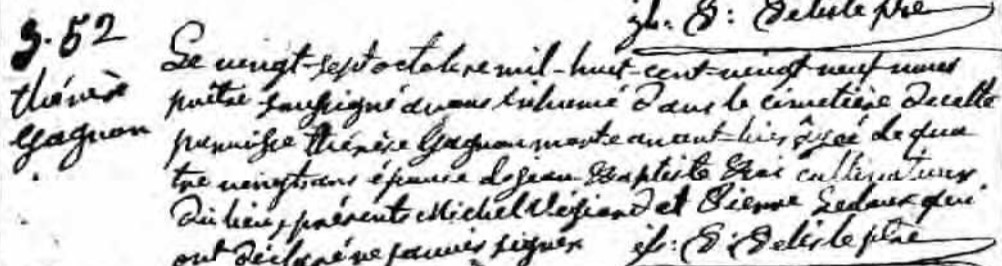 jh: D: Delisle ptre
S. 52
thérèse
Gagnon
Le vingt-sept octobre mil-huit-cent-vingt-neuf nous
prêtre soussigné avons inhumé dans le cimetière de cette
paroisse thérèse Gagnon morte avant-hier âgée de qua
tre vingts ans épouse de jean Baptiste cultivateur
du lieu, présents Michel et Pierre Ledoux qui
ont déclaré ne savoir signer jh: D: Delisle ptre